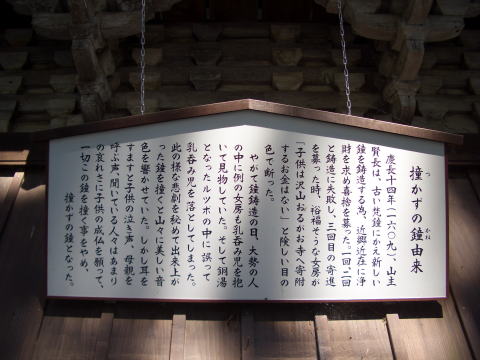 撞かずの鐘由来
つ
かね
慶長十四年(一六〇九)、山主
賢長は、古い梵鐘にかえ新しい
鐘を鋳造する為、近郷近在に浄
財を求め喜捨を募った。一回・二回
と鋳造に失敗し、三回目の寄進
を募った時、裕福そうな女房が
「子供は沢山おるがお寺へ寄附
するお金はない」と険しい目の
色で断った。
やがて鐘鋳造の日、大勢の人
の中に例の女房も乳呑み児を抱
いて見物していた。そして銅湯
となったルツボの中に誤って
乳呑み児を落としてしまった。
此の様な悲劇を秘めて出来上が
った鐘を撞くと山々に美しい音
色を響かせていた。しかし耳を
すますと子供の泣き声、母親を
呼ぶ声、聞いている人々はあまり
の哀れさに子供の成仏を願って、
一切この鐘を撞く事をやめ、
撞かずの鐘となった。